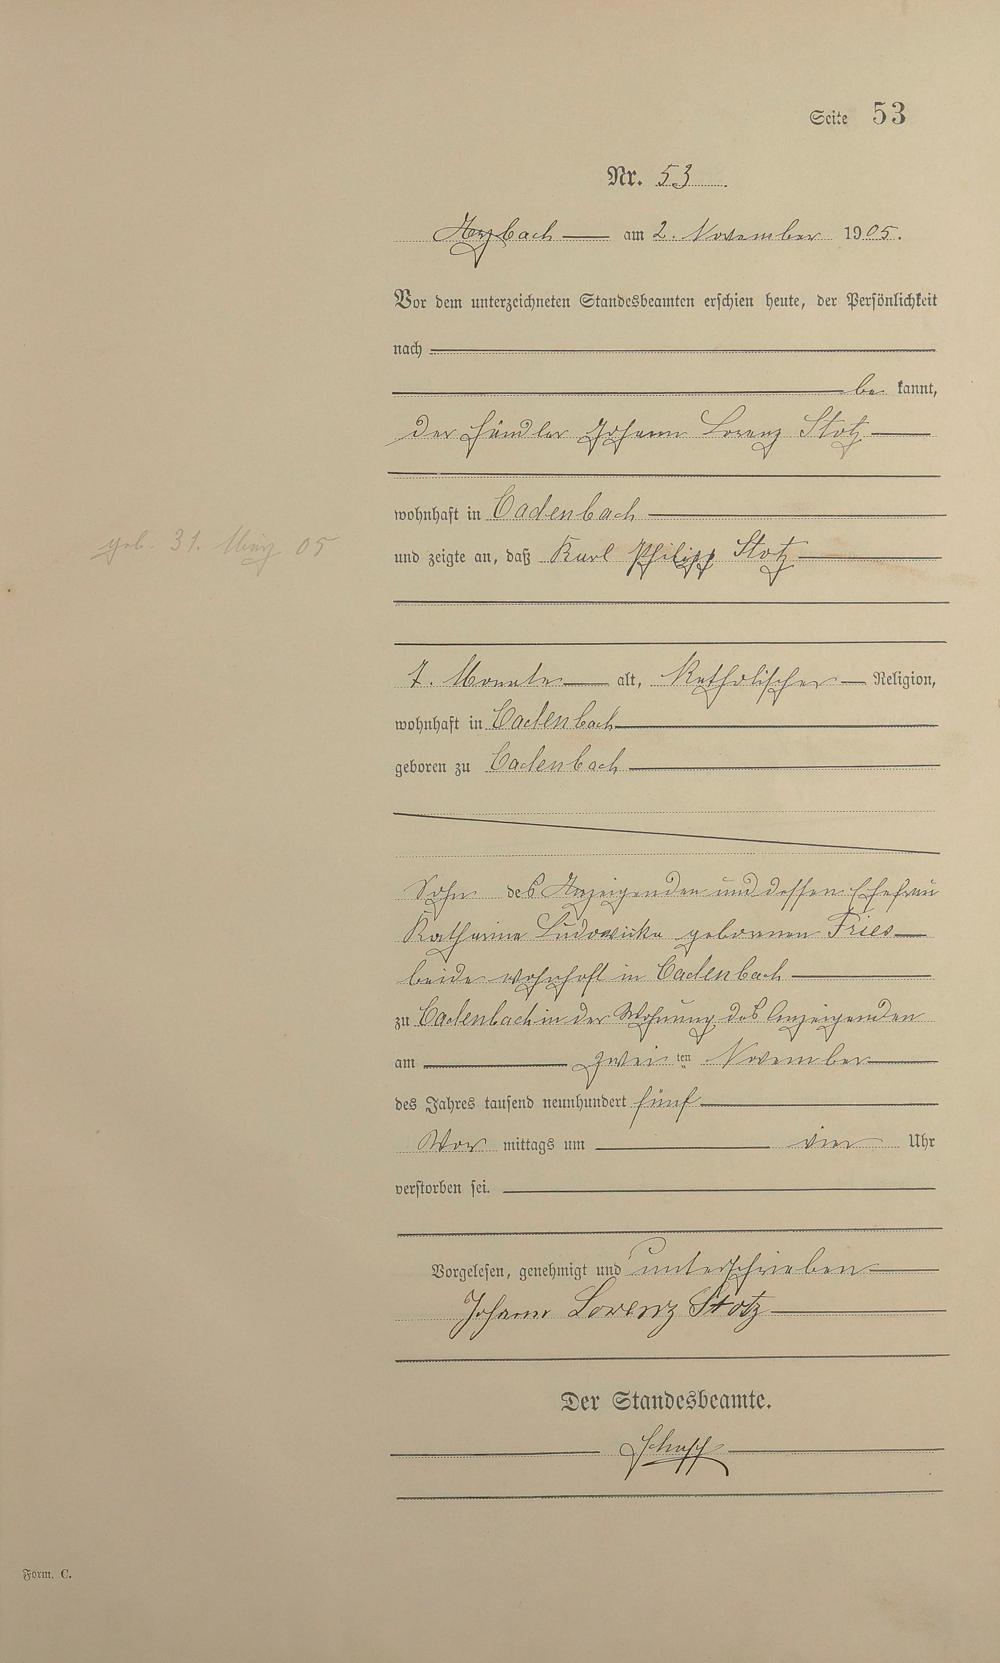 Seite 53
Nr. 53
Arzbach am 2. November 1905.
Vor dem unterzeichneten Standesbeamten erschien heute, der Persönlichkeit
nach
be kannt,
der Händler Johann Lorenz Stotz
wohnhaft in Cadenbach
geb. 31. März 05
und zeigte an, daß Karl Philipp Stotz
7. Monate alt, Katholischer Religion,
wohnhaft in Cadenbach
geboren zu Cadenbach
Sohn des Anzeigenden und dessen Ehefrau
Katharine Ludowicka gebornen Fries
beide wohnhaft in Cadenbach
zu Cadenbach in der Wohnung des Anzeigenden
am zwei ten November
des Jahres tausend neunhundert fünf
Vor mittags um vier Uhr
verstorben sei.
Vorgelesen, genehmigt und unterschrieben
Johann Lorenz Stotz
Der Standesbeamte.
Form. C.